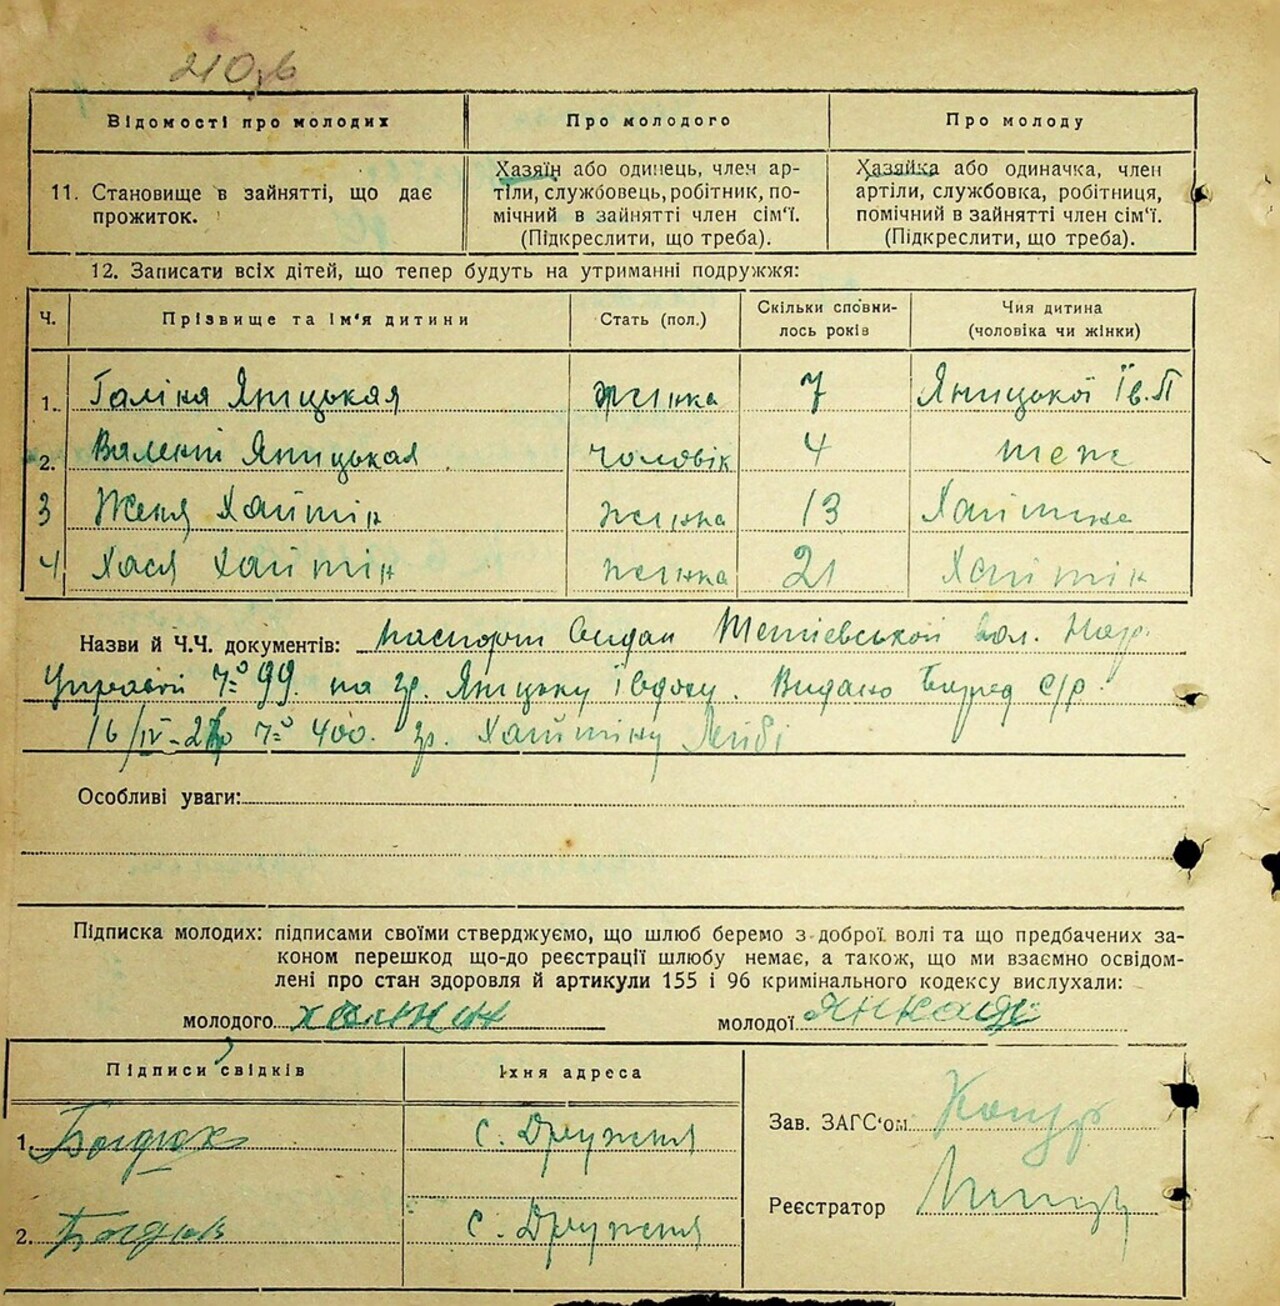 210
Відомості про молодих
Про молодого
Про молоду
11. Становище в зайнятті, що дає
прожиток.
Хазяїн або одинець, член ар-
тіли, службовець, робітник, по-
мічний в зайнятті член сім'ї.
(Підкреслити, що треба).
Хазяйка або одиначка, член
артіли, службовка, робітниця,
помічний в зайнятті член сім'ї.
(Підкреслити, що треба).
12. Записати всіх дітей, що тепер будуть на утриманні подружжя:
Ч.
Прізвище та ім'я дитини
Стать (пол.)
Скільки сповни-
лось років
Чия дитина
(чоловіка чи жінки)
1. Галіна Яницькая жинка 7 Яницької Їв.П
2. Валентій Яницькая чоловік 4 теж
3 Женя Хайтін жинка 13 Хайтина
4 Хася Хайтін жинка 21 Хайтін
Назви й Ч.Ч. документів: паспорт Видан Тетіевськой вол. Нар.
Управой № 99. на гр. Яницьку Івдоху. Видано с/р.
16/IV-27р № 400. гр. Хайтіну Лейбі
Особливі уваги:
Підписка молодих: підписами своїми стверджуємо, що шлюб беремо з доброї волі та що предбачених за-
коном перешкод що-до реєстрації шлюбу немає, а також, що ми взаємно освідом-
лені про стан здоровля й артикули 155 і 96 кримінального кодексу вислухали:
молодого
молодої
Підписи свідків
Їхня адреса
1. с. Дружня
2. с. Дружня
Зав. ЗАГС'ом
Реєстратор